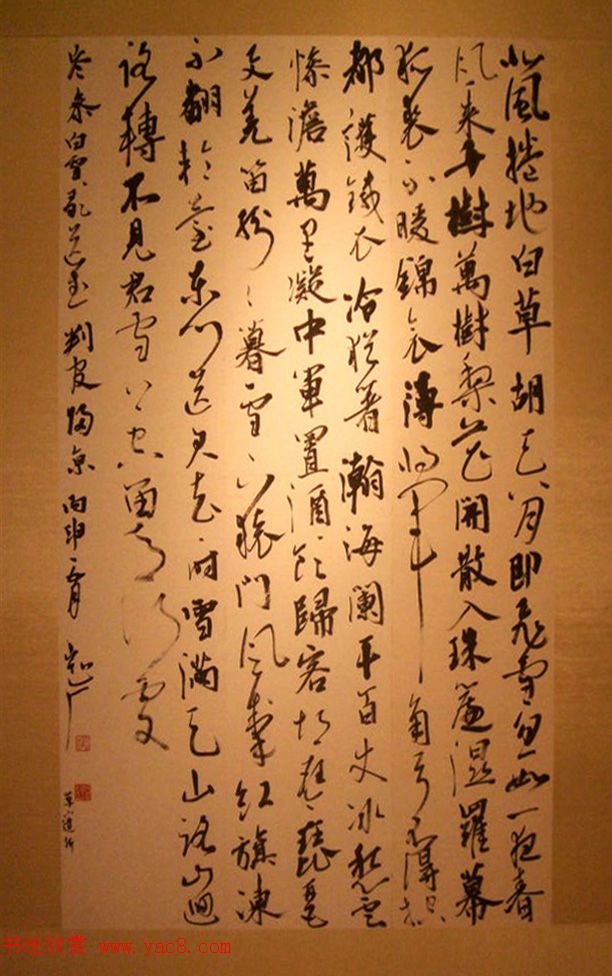 北風捲地白草胡天八月即飛雪忽如一夜春
風來千樹萬樹梨花開散入珠簾濕羅幕
狐裘不暖錦衾薄將軍角弓不得控
都護鐵衣冷猶著瀚海闌干百丈冰愁雲
慘澹萬里凝中軍置酒飲歸客胡琴琵琶
与羌笛紛々暮雪下轅門風掣紅旗凍
不翻輪臺東門送君去々時雪滿天山路山迴
路轉不見君雪上空留馬行處
岑參白雪歌送武判官歸京 丙申
书法欣赏 www.yac8.com